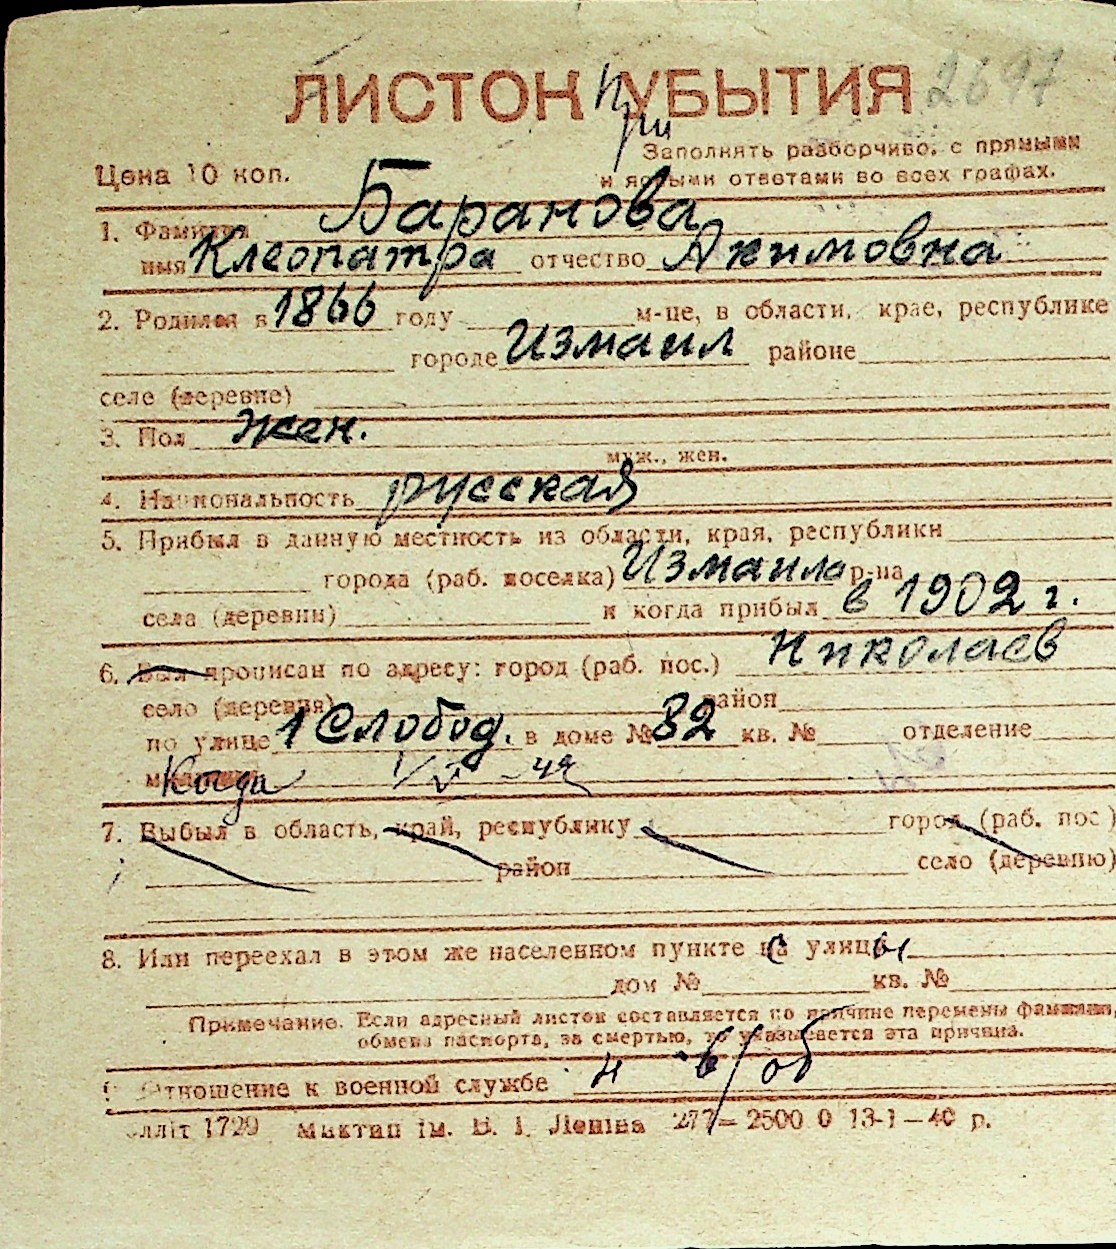 ЛИСТОК УБЫТИЯ 2697
При
Заполнять разборчиво, с прямыми
Цена 10 коп. и ясными ответами во всех графах.
1. Фамилия Баранова
имя Клеопатра отчество Акимовна
2. Родился в 1866 году м-це, в области, крае, республике
городе Измаил районе
селе (деревне)
3. Пол жен.
муж., жен.
4. Национальность русская
5. Прибыл в данную местность из области, края, республики
города (раб. поселка) Измаила р-на
села (деревни) и когда прибыл в 1902 г.
6. Был прописан по адресу: город (раб. пос.) Николаев
село (деревня) район
по улице 1 Слобод. в доме № 82 кв. № отделение
милиции Когда
7. Выбыл в область, край, республику город (раб. пос.)
район село (деревню)
8. Или переехал в этом же населенном пункте с улицы
дом № кв. №
Примечание. Если адресный листок составляется по причине перемены фамилии,
обмена паспорта, за смертью, то указывается эта причина.
9. Отношение к военной службе н в/об
лліт 1729 ім. В. І. Леніна 277 — 2500 0 13-1—40 р.